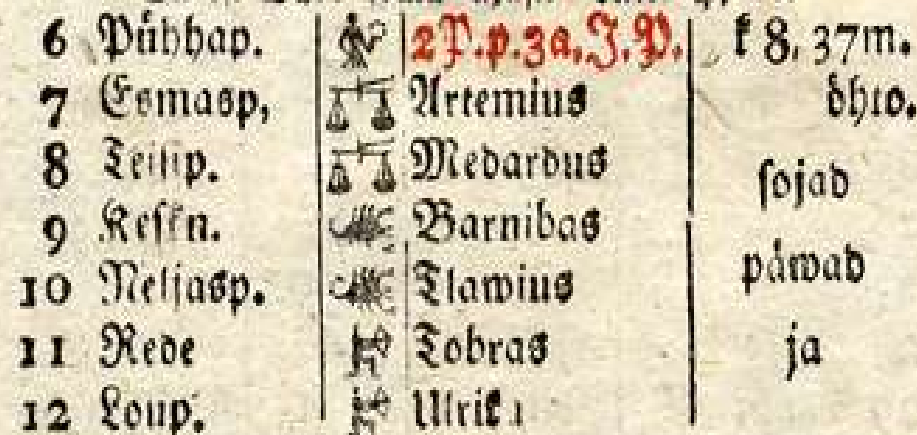 6 Pühhap. 2P.p.3a.J.P. k 8, 37m.
7 Esmasp, Artemius öhto.
8 Teisip. Medardus sojad
9 Keskn. Barnibas
10 Neljasp. Tlawius päwad
11 Rede Tobras ja
12 Loup. Ulrik